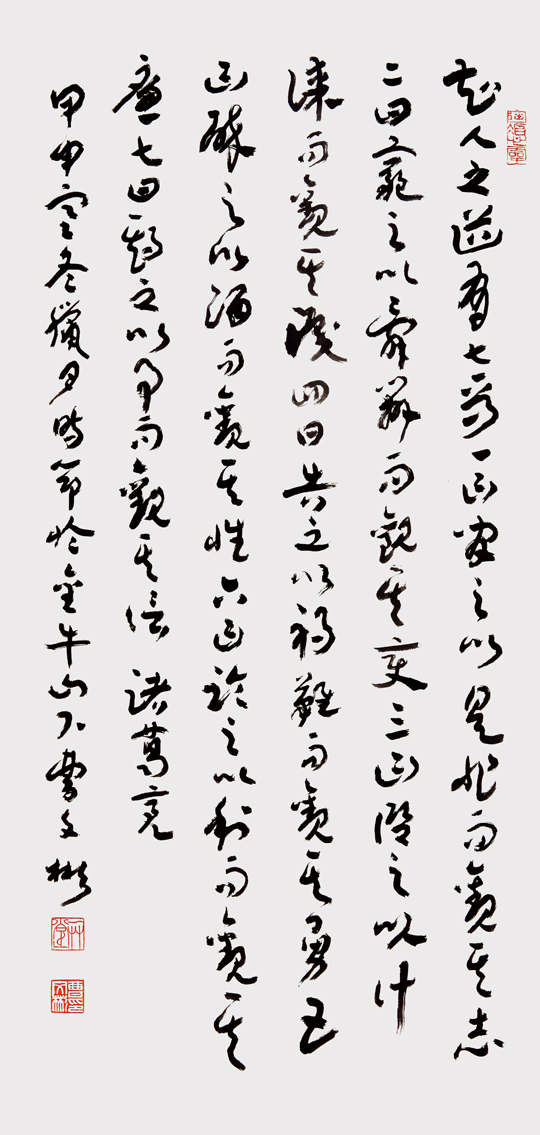 知人之道有七焉一曰間之以是非而觀其志
二曰窮之以辭辯而觀其變三曰諮之以計
謀而觀其識四曰告之以禍難而觀其勇五
曰醉之以酒而觀其性六曰臨之以利而觀其
廉七曰期之以事而觀其信 諸葛亮
甲申寒冬臘月時節於金牛山下曹文彬